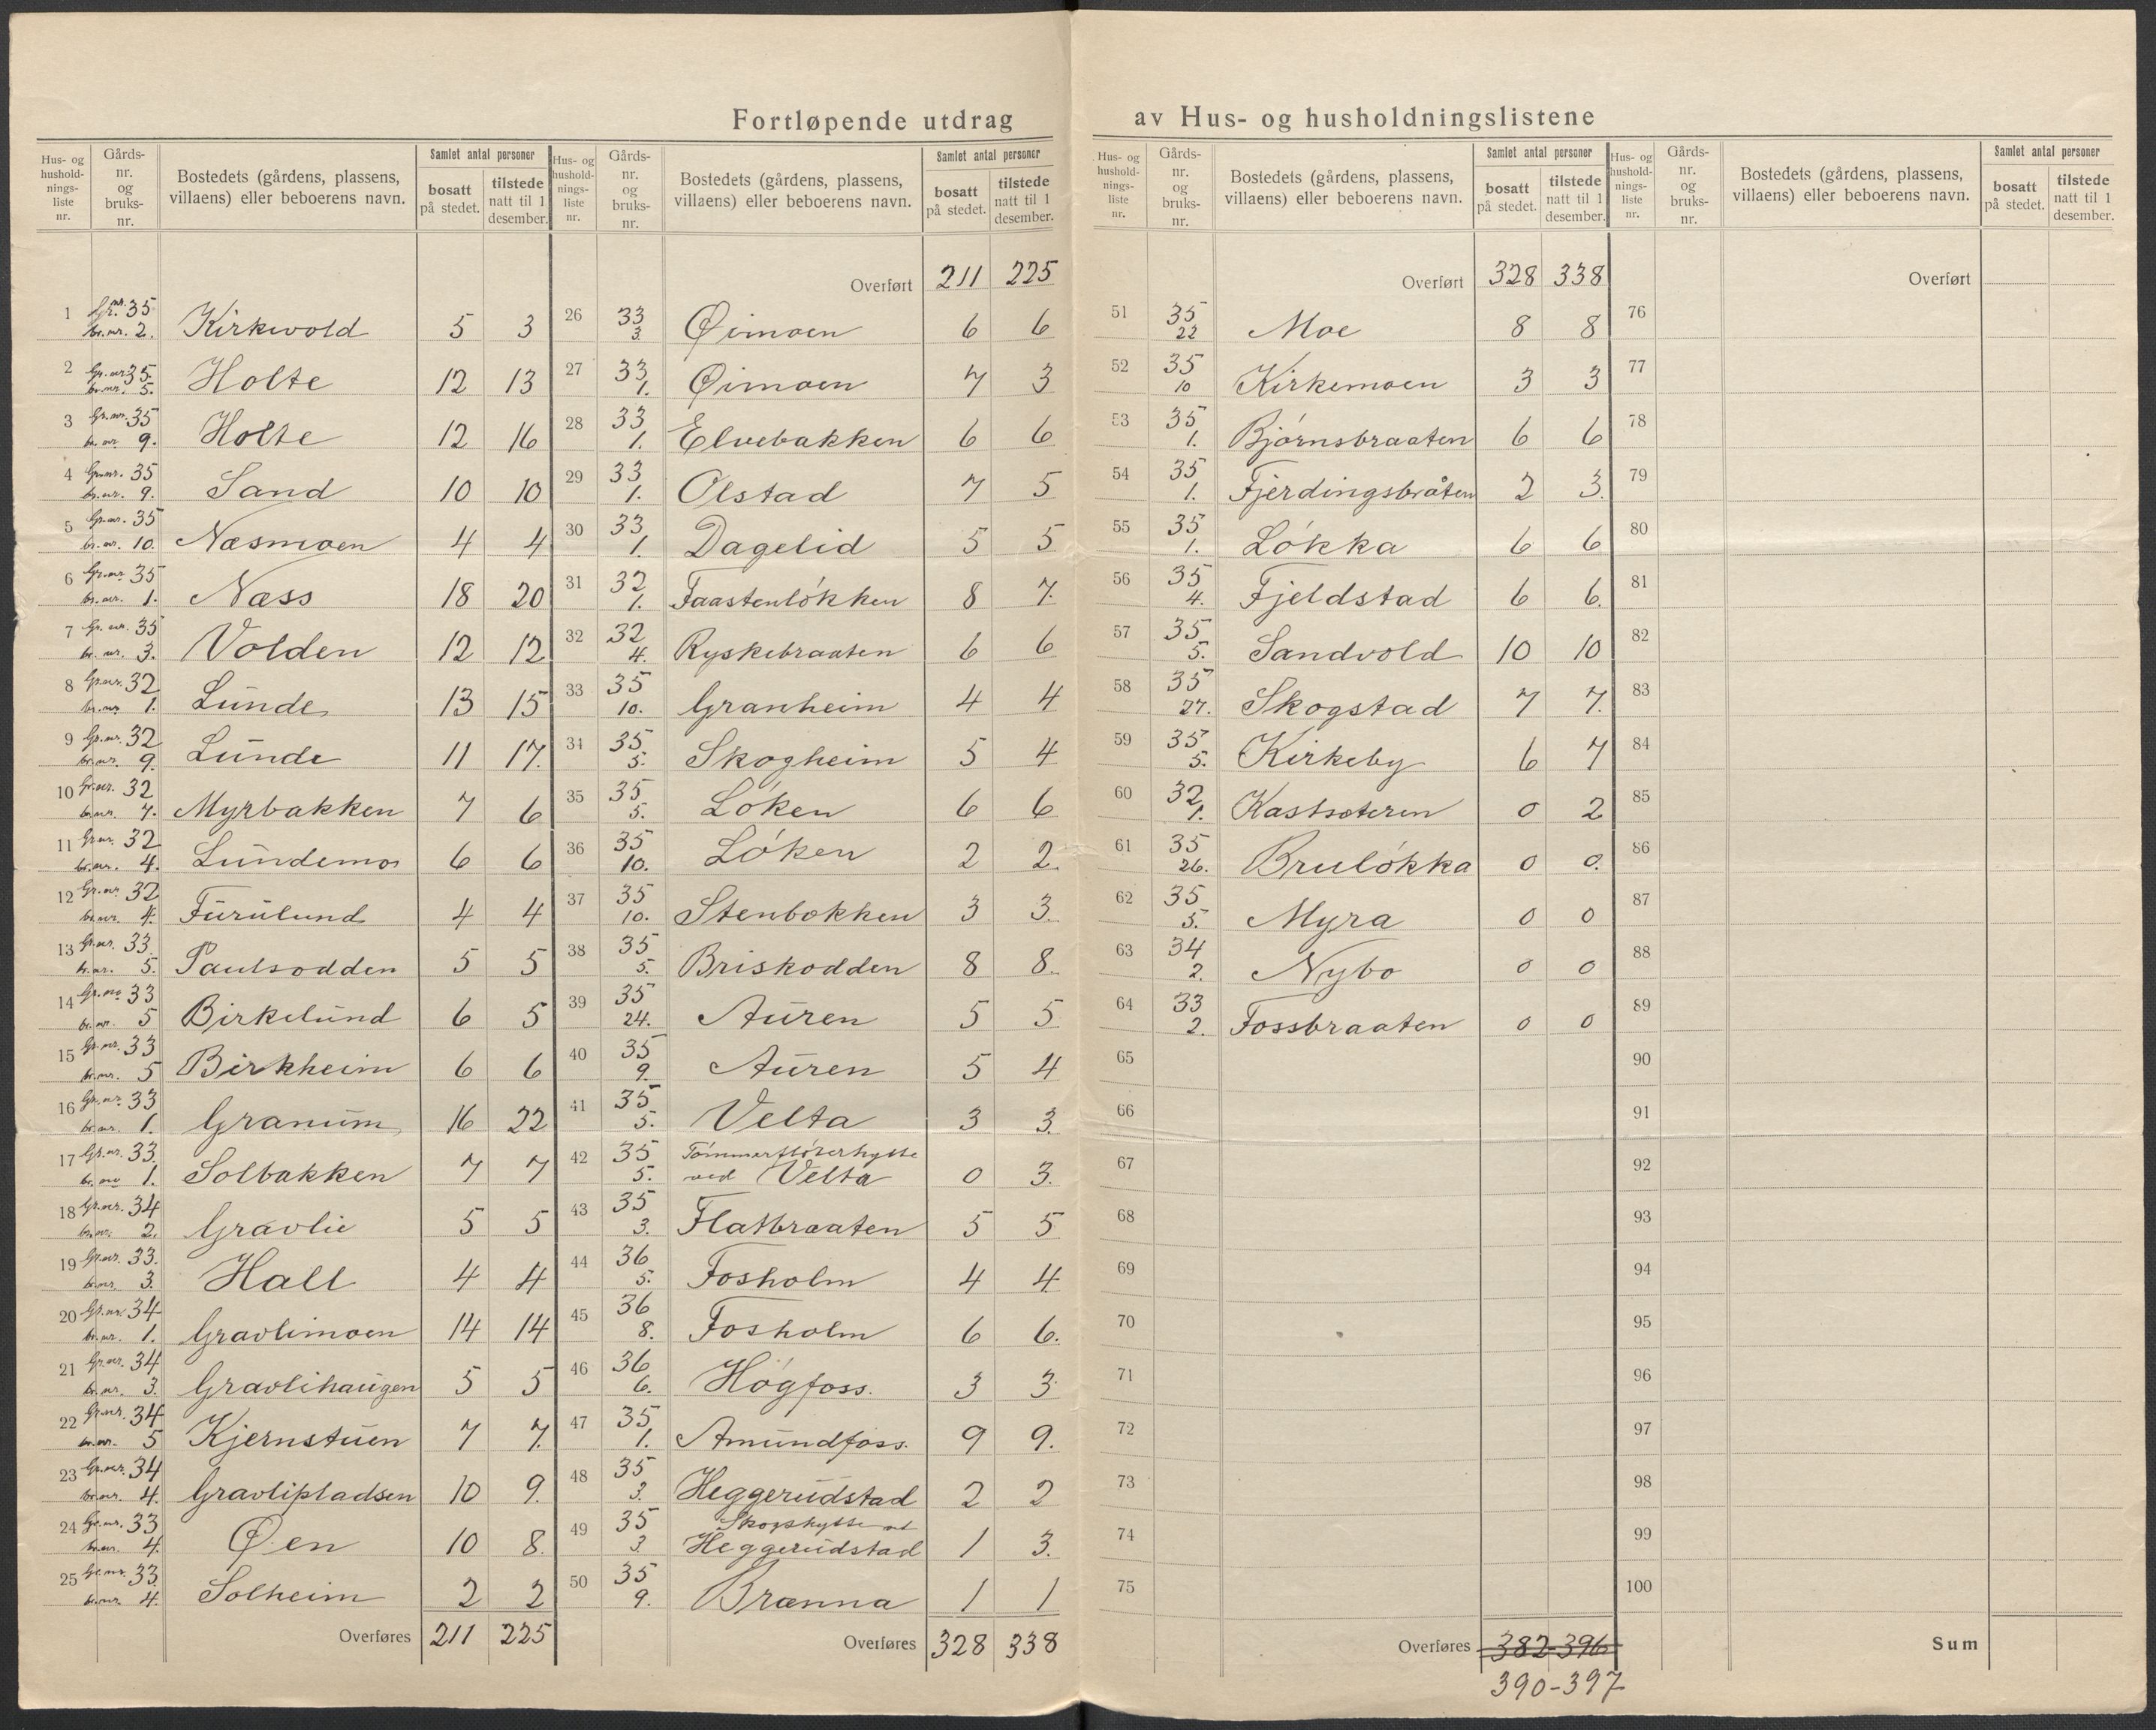 Fortløpende utdrag av Hus- og husholdningslistene
Hus- og husholdningsliste nr. | Gårdsnr. og bruksnr. | Bostedets (gårdens, plassens, villaens) eller beboerens navn. | Samlet antal personer | bosatt på stedet. | tilstede natt til 1 desember.
1 Gr.nr. 35 br.nr. 2. Kirkevold 5 3
2 Gr.nr. 35. br.nr. 5. Holte 12 13
3 Gr.nr. 35 br.nr. 9. Holte 12 16
4 Gr.nr. 35 br.nr. 9. Sand 10 10
5 Gr.nr. 35 br.nr. 10. Næsmoen 4 4
6 Gr.nr. 35 br.nr. 1. Næss 18 20
7 Gr.nr. 35 br.nr. 3. Volden 12 12
8 Gr.nr. 32 br.nr. 1. Lunde 13 15
9 Gr.nr. 32 br.nr. 9. Lunde 11 17.
10 Gr.nr. 32 br.nr. 7. Myrbakken 7 6
11 Gr.nr. 32 br.nr. 4. Lundemo 6 6
12 Gr.nr. 32 br.nr. 4. Furulund 4 4
13 Gr.nr. 33. br.nr. 5. Paulsodden 5 5
14 Gr.nr. 33 br.nr. 5 Birkelund 6 5
15 Gr.nr. 33 br.nr. 5 Birkheim 6 6
16 Gr.nr. 33 br.nr. 1. Granum 16 22
17 Gr.nr. 33. br.nr. 1. Solbakken 7 7
18 Gr.nr. 34 br.nr. 2. Gravlie 5 5
19 Gr.nr. 33. br.nr. 3. Hall 4 4
20 Gr.nr. 34 br.nr. 1. Gravlimoen 14 14
21 Gr.nr. 34 br.nr. 3. Gravlihaugen 5 5
22 Gr.nr. 34 br.nr. 5 Kjernstuen 7 7.
23 Gr.nr. 34 br.nr. 4. Gravlipladsen 10 9.
24 Gr.nr. 33 br.nr. 4. Øen 10 8.
25 Gr.nr. 33. br.nr. 4. Solheim 2 2
Overføres 211 225
Hus- og husholdningsliste nr. | Gårdsnr. og bruksnr. | Bostedets (gårdens, plassens, villaens) eller beboerens navn. | Samlet antal personer | bosatt på stedet. | tilstede natt til 1 desember.
Overført 211 225
26 33 3. Øimoen 6 6
27 33 1. Øimoen 7 3
28 33 1. Elvebakken 6 6
29 33 1. Olstad 7 5
30 33 1. Dagelid 5 5
31 32 1. Faastenløkken 8 7.
32 32 4. Ryskebraaten 6 6
33 35 10. Granheim 4 4
34 35 5. Skogheim 5 4
35 35 5. Løken 6 6
36 35 10. Løken 2 2.
37 35 10. Stenbekken 3 3.
38 35 5. Briskodden 8 8.
39 35 24. Auren 5 5
40 35 9. Auren 5 4
41 35 5. Velta 3 3.
42 35 5. Tømmerfløterhytte ved Velta 0 3.
43 35 3. Flatbraaten 5 5
44 36 5. Fosholm 4 4
45 36 8. Fosholm 6 6.
46 36 6. Høgfoss. 3 3
47 35 1. Amundfoss. 9 9.
48 35 3. Heggerudstad 2 2
49 35 3 Skogshytte at Heggerudstad 1 3.
50 35 9. Brænna 1 1
Overføres 328 338
Hus- og husholdningsliste nr. | Gårdsnr. og bruksnr. | Bostedets (gårdens, plassens, villaens) eller beboerens navn. | Samlet antal personer | bosatt på stedet. | tilstede natt til 1 desember.
Overført 328 338
51 35 22 Moe 8 8
52 35 10 Kirkemoen 3 3
53 35 1. Bjørnsbraaten 6 6
54 35 1. Fjerdingsbråten 2 3.
55 35 1. Løkka 6 6
56 35 4. Fjeldstad 6 6.
57 35 5. Sandvold 10 10
58 35 27. Skogstad 7 7.
59 35 5. Kirkeby 6 7
60 32 1. Kastsæteren 0 2
61 35 26. Bruløkka 0 0.
62 35 5. Myra 0 0
63 34 2. Nybo 0 0
64 33 2. Fossbraaten 0 0
65
66
67
68
69
70
71
72
73
74
75
Overføres 382-396
390-397
Hus- og husholdningsliste nr. | Gårdsnr. og bruksnr. | Bostedets (gårdens, plassens, villaens) eller beboerens navn. | Samlet antal personer | bosatt på stedet. | tilstede natt til 1 desember.
Overført
76
77
78
79
80
81
82
83
84
85
86
87
88
89
90
91
92
93
94
95
96
97
98
99
100
Sum